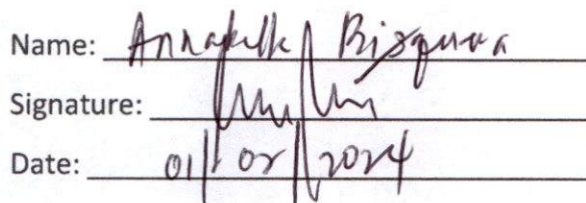 Name: Annabelle
Signature:
Date: 01/02/2024